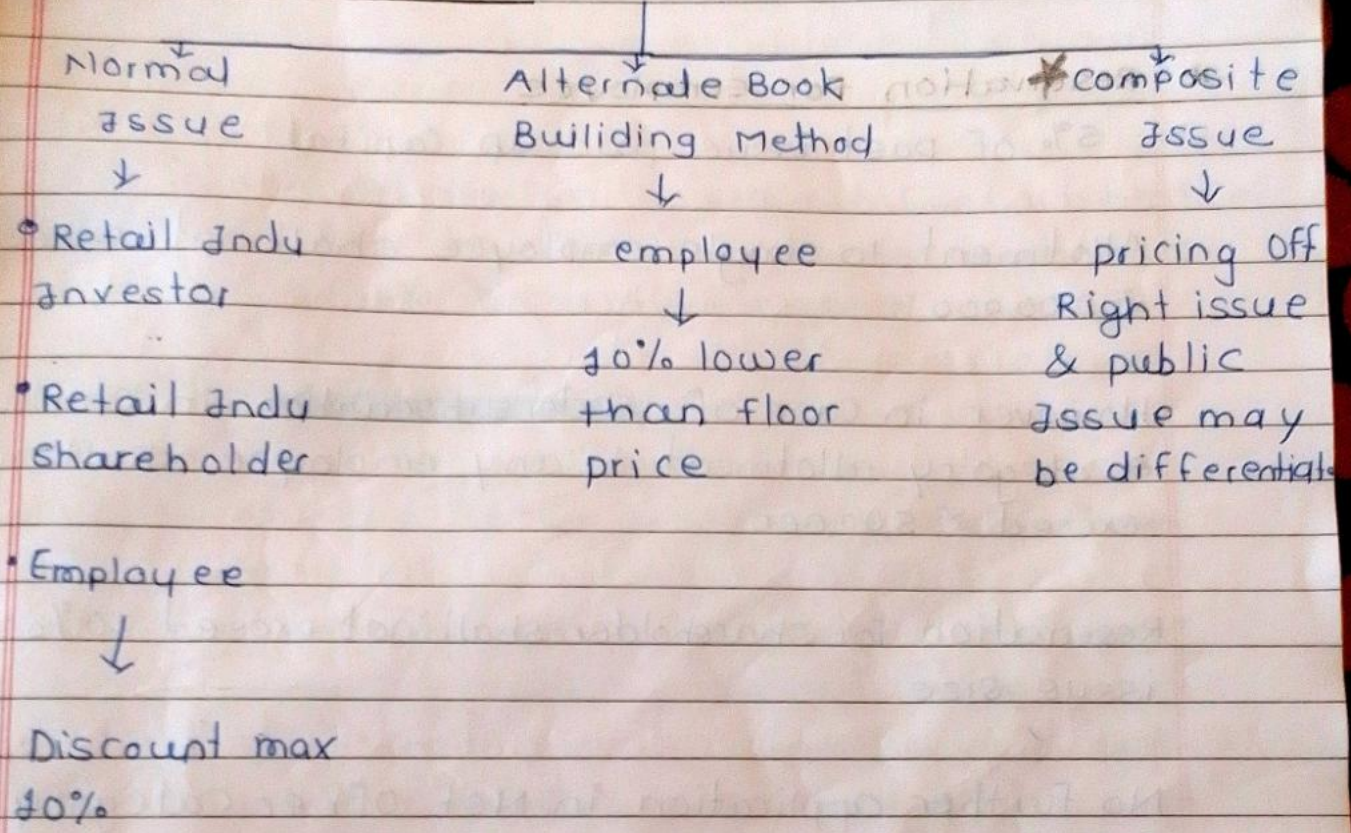 Normal
Issue
↓
• Retail Indv
Investor
• Retail Indv
Shareholder
• Employee
↓
Discount max
10%
Alternate Book
Builiding Method
↓
employee
↓
10% lower
than floor
price
*composite
Issue
↓
pricing Off
Right issue
& public
Issue may
be differential